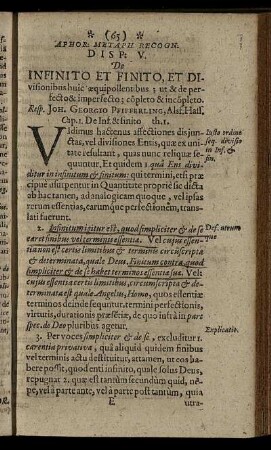 (65)
APHOR. METAPH RECOGN.
DISP. V.
De
INFINITO ET FINITO, ET DI-
visionibus huic æquipollentibus; ut & de per-
fecto & imperfecto; cõpleto & incõpleto.
Resp. JOH. GEORGIO PFEFERLING, Alsf. Hass.
Cap. 1. De Inf. & finito th. 1.
Vidimus hactenus affectiones disjun-
ctas, vel divisiones Entis, quæ ex uni-
tate resultant, quas nunc reliquæ se-
quuntur. Et quidem 1. quâ Ens divi-
ditur in infinitum & finitum: qui termini, etsi præ-
cipuè usurpentur in Quantitate propriè sic dicta
ab hactamen, ad analogicam quoque, vel ipsas
rerum essentias, earumque perfectionẽm, trans-
lati fuerunt.
Justo ordine
seq. divisio
in Inf. &
fin.
2. Infinitum igitur est, quod simpliciter & de se
caret finibus vel terminis essentiæ. Vel cujus essen-
tia non est certis limitibus & terminis circumscripta
& determinata, qualis Deus. Finitum contra, quod
simpliciter & de se habet terminos essentiæ suæ. Vel
cujus essentia certis limitibus, circumscripta & de-
terminata est quale Angelus, Homo, quos essentiæ
terminos deinde sequuntur termini perfectionis,
virtutis, durationis, præsentiæ, de quo infrà in par
spec. de Deo pluribus agetur.
Def. utrum
que
3. Per voces simpliciter & de se, excluditur 1.
carentia privativa, quâ aliquid quidem finibus
vel terminis actu destituitur, attamen, ut eos ha-
bere possit, quod enti infinito, quale solus Deus,
repugnat 2. quæ est tantùm secundùm quid, nẽ-
pe, vel à parte antè, vel à parte post tantùm, quia
Explicatio.
E
utra-